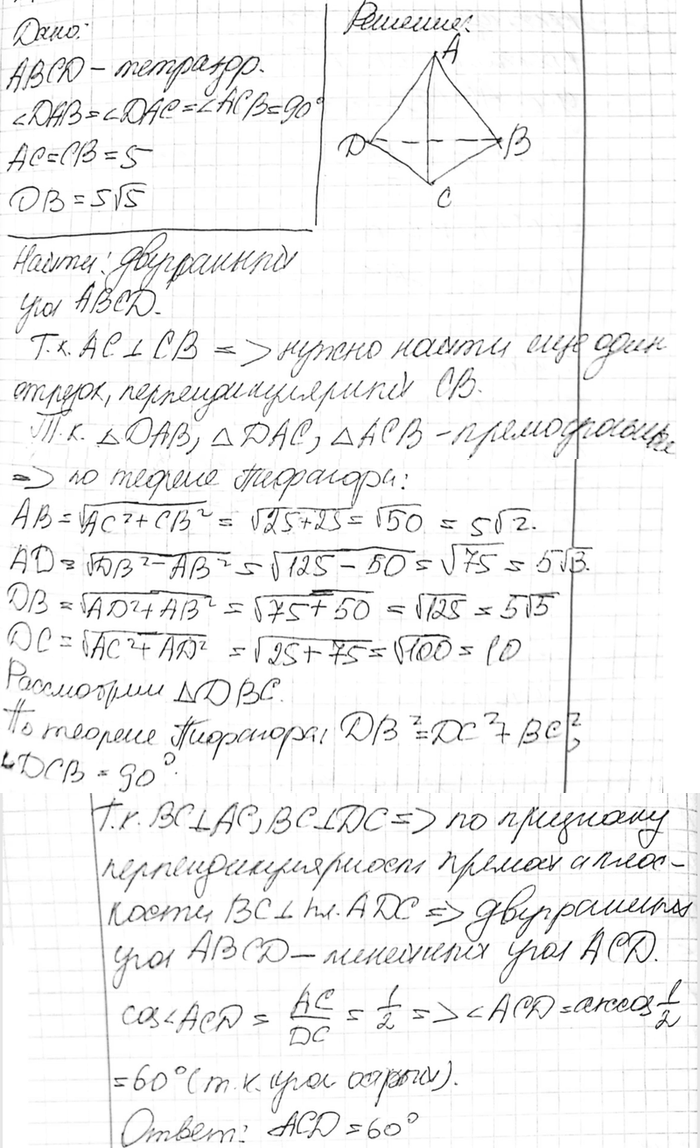 Дано:
ABCD – тетраэдр.
∠DAB=∠DAC=∠ACB=90°
AC=CB=5
DB=5√5
Решение:
A
D
B
C
Найти: двугранный
угол ABCD.
Т.к. AC⊥CB => нужно найти еще один
отрезок, перпендикулярный CB.
Т.к. △DAB, △DAC, △ACB – прямоугольные
=> по теореме Пифагора:
AB=√AC²+CB² = √25+25=√50 = 5√2.
AD=√DB²–AB² = √125–50=√75=5√3.
DB=√AD²+AB² = √75+50 = √125 = 5√5
DC=√AC²+AD² = √25+75=√100=10
Рассмотрим △DBC.
По теореме Пифагора: DB²=DC²+BC²,
∠DCB=90°.
Т.к. BC⊥AC, BC⊥DC => по признаку
перпендикулярности прямой и плос-
кости BC⊥пл. ADC => двугранный
угол ABCD – линейный угол ACD.
cos∠ACD = AC/DC = 1/2 => ∠ACD=arccos 1/2
=60° (т.к. угол острый).
Ответ: ∠ACD=60°